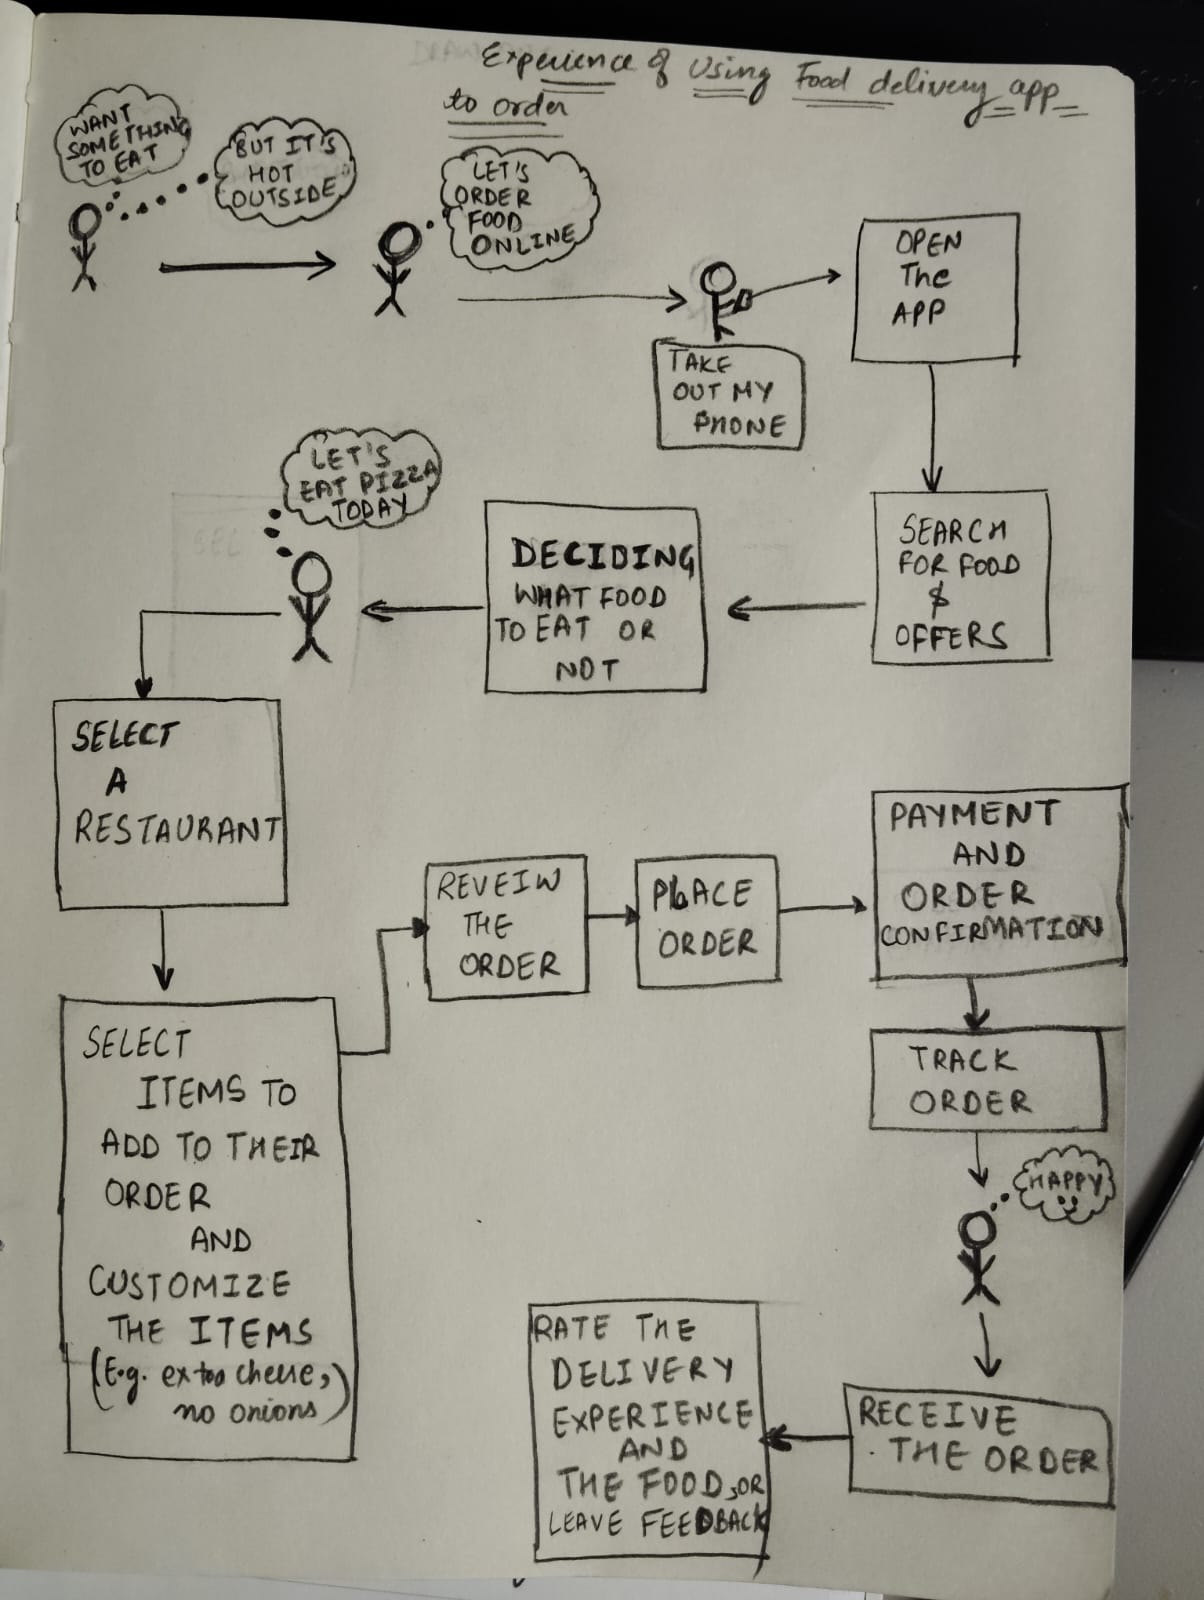 Experience of Using Food delivery app
to order
WANT
SOMETHING
TO EAT
BUT IT'S
HOT
OUTSIDE
LET'S
ORDER
FOOD
ONLINE
TAKE
OUT MY
PHONE
OPEN
The
APP
SEARCH
FOR FOOD
&
OFFERS
DECIDING
WHAT FOOD
TO EAT OR
NOT
LET'S
EAT PIZZA
TODAY
SELECT
A
RESTAURANT
SELECT
ITEMS TO
ADD TO THEIR
ORDER
AND
CUSTOMIZE
THE ITEMS
(E.g. extra cheese,
no onions)
REVEIW
THE
ORDER
PLACE
ORDER
PAYMENT
AND
ORDER
CONFIRMATION
TRACK
ORDER
HAPPY
RECEIVE
THE ORDER
RATE THE
DELIVERY
EXPERIENCE
AND
THE FOOD, OR
LEAVE FEEDBACK